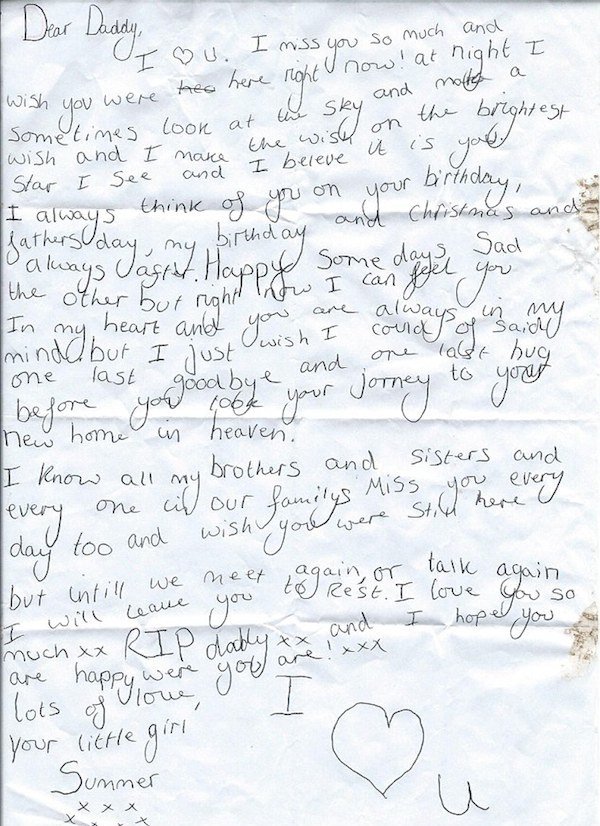 Dear Daddy,
I ♡ U. I miss you so much and
wish you were here right now! at night I
sometimes look at the sky and make a
wish and I make the wish on the brightest
Star I See and I beleve it is you.
I always think of you on your birthday,
and Christmas and
fathers day, my birthday
always after. Happy Some days Sad
the other but right now I can feel you
In my heart and you are always in my
mind but I just wish I could of said
one last goodbye and one last hug
before you took your jorney to your
new home in heaven.
I Know all my brothers and sisters and
every one in our familys Miss you every
day too and wish you were Still here
but intill we meet again, or talk again
I will leave you to Rest. I love you so
much xx RIP daddy xx and I hope you
are happy were you are! xxx
lots of love,
your little girl,
Summer
x x x
x x x x
I
♡
U